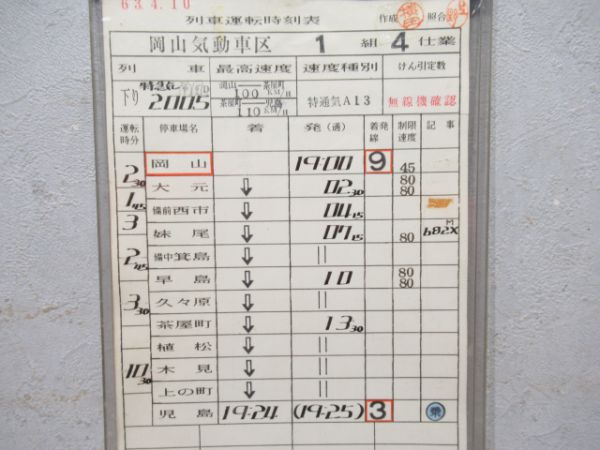 63.4.10
列車運転時刻表 作成 照合
岡山気動車区 1 組 4 仕業
列 車 最高速度 速度種別 けん引定数
下り 特急 2005D 岡山―茶屋町 100 KM/H 茶屋町―児島 110 KM/H 特通気A13 無線機確認
運転時分 停車場名 着 発(通) 着発線 制限速度 記事
岡山 19:00 9 45
2 30 大元 ↓ 02 30 80 80
1 45 備前西市 ↓ 04 15
3 妹尾 ↓ 07 15 80 682XM
備中箕島 ↓ ||
2 45 早島 ↓ 10 80 80
久々原 ↓ ||
3 30 茶屋町 ↓ 13 30
植松 ↓ ||
木見 ↓ ||
10 30 上の町 ↓ ||
児島 19:24 (19:25) 3 乗